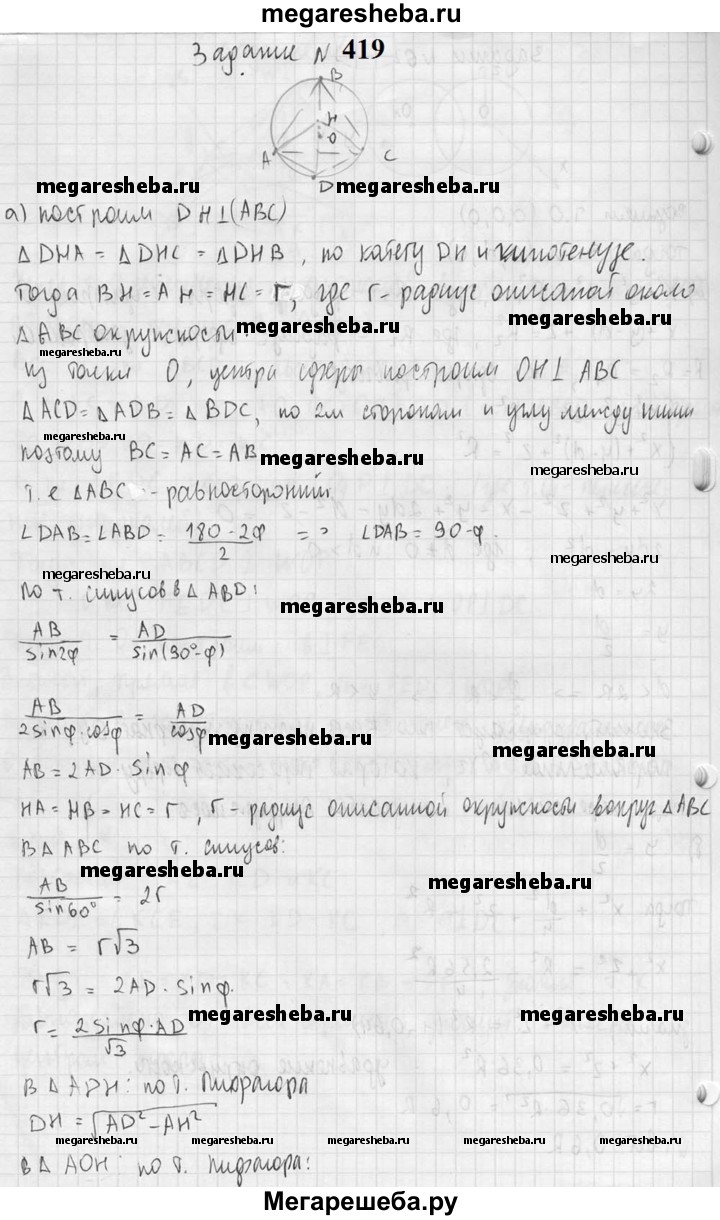 megaresheba.ru
Задание N 419
B
H
O
A
C
D
megaresheba.ru megaresheba.ru
а) построим DH⊥(ABC)
Δ DHA = Δ DHC = Δ DHB, по катету DH и гипотенузе.
Тогда BH = AH = HC = r, где r - радиус описаной около
megaresheba.ru
Δ ABC окружности.
megaresheba.ru
megaresheba.ru
из точки O, центра сферы построим OH⊥ ABC
Δ ACD = Δ ADB = Δ BDC, по 2м сторонам и углу между ними
megaresheba.ru
поэтому BC = AC = AB
megaresheba.ru
megaresheba.ru
т.е ΔABC - равносторонний
∠DAB = ∠ABD = (180 - 2φ)/2 => ∠DAB = 90-φ.
megaresheba.ru
megaresheba.ru
по т. синусов в Δ ABD:
megaresheba.ru
AB/sin2φ = AD/sin(90°-φ)
AB/2sinφ·cosφ = AD/cosφ
megaresheba.ru
megaresheba.ru
AB = 2AD · sinφ
HA = HB = HC = r, r - радиус описанной окружносы вокруг ΔABC
В Δ ABC по т. синусов:
megaresheba.ru
megaresheba.ru
AB/sin60° = 2r
AB = r√3
r√3 = 2AD · sinφ.
megaresheba.ru
megaresheba.ru
r = 2sinφ·AD/√3
В Δ ADH: по т. Пифагора
DH = √AD² - AH²
megaresheba.ru megaresheba.ru megaresheba.ru megaresheba.ru megaresheba.ru
в Δ AOH по т. Пифагора:
Мегарешеба.ру